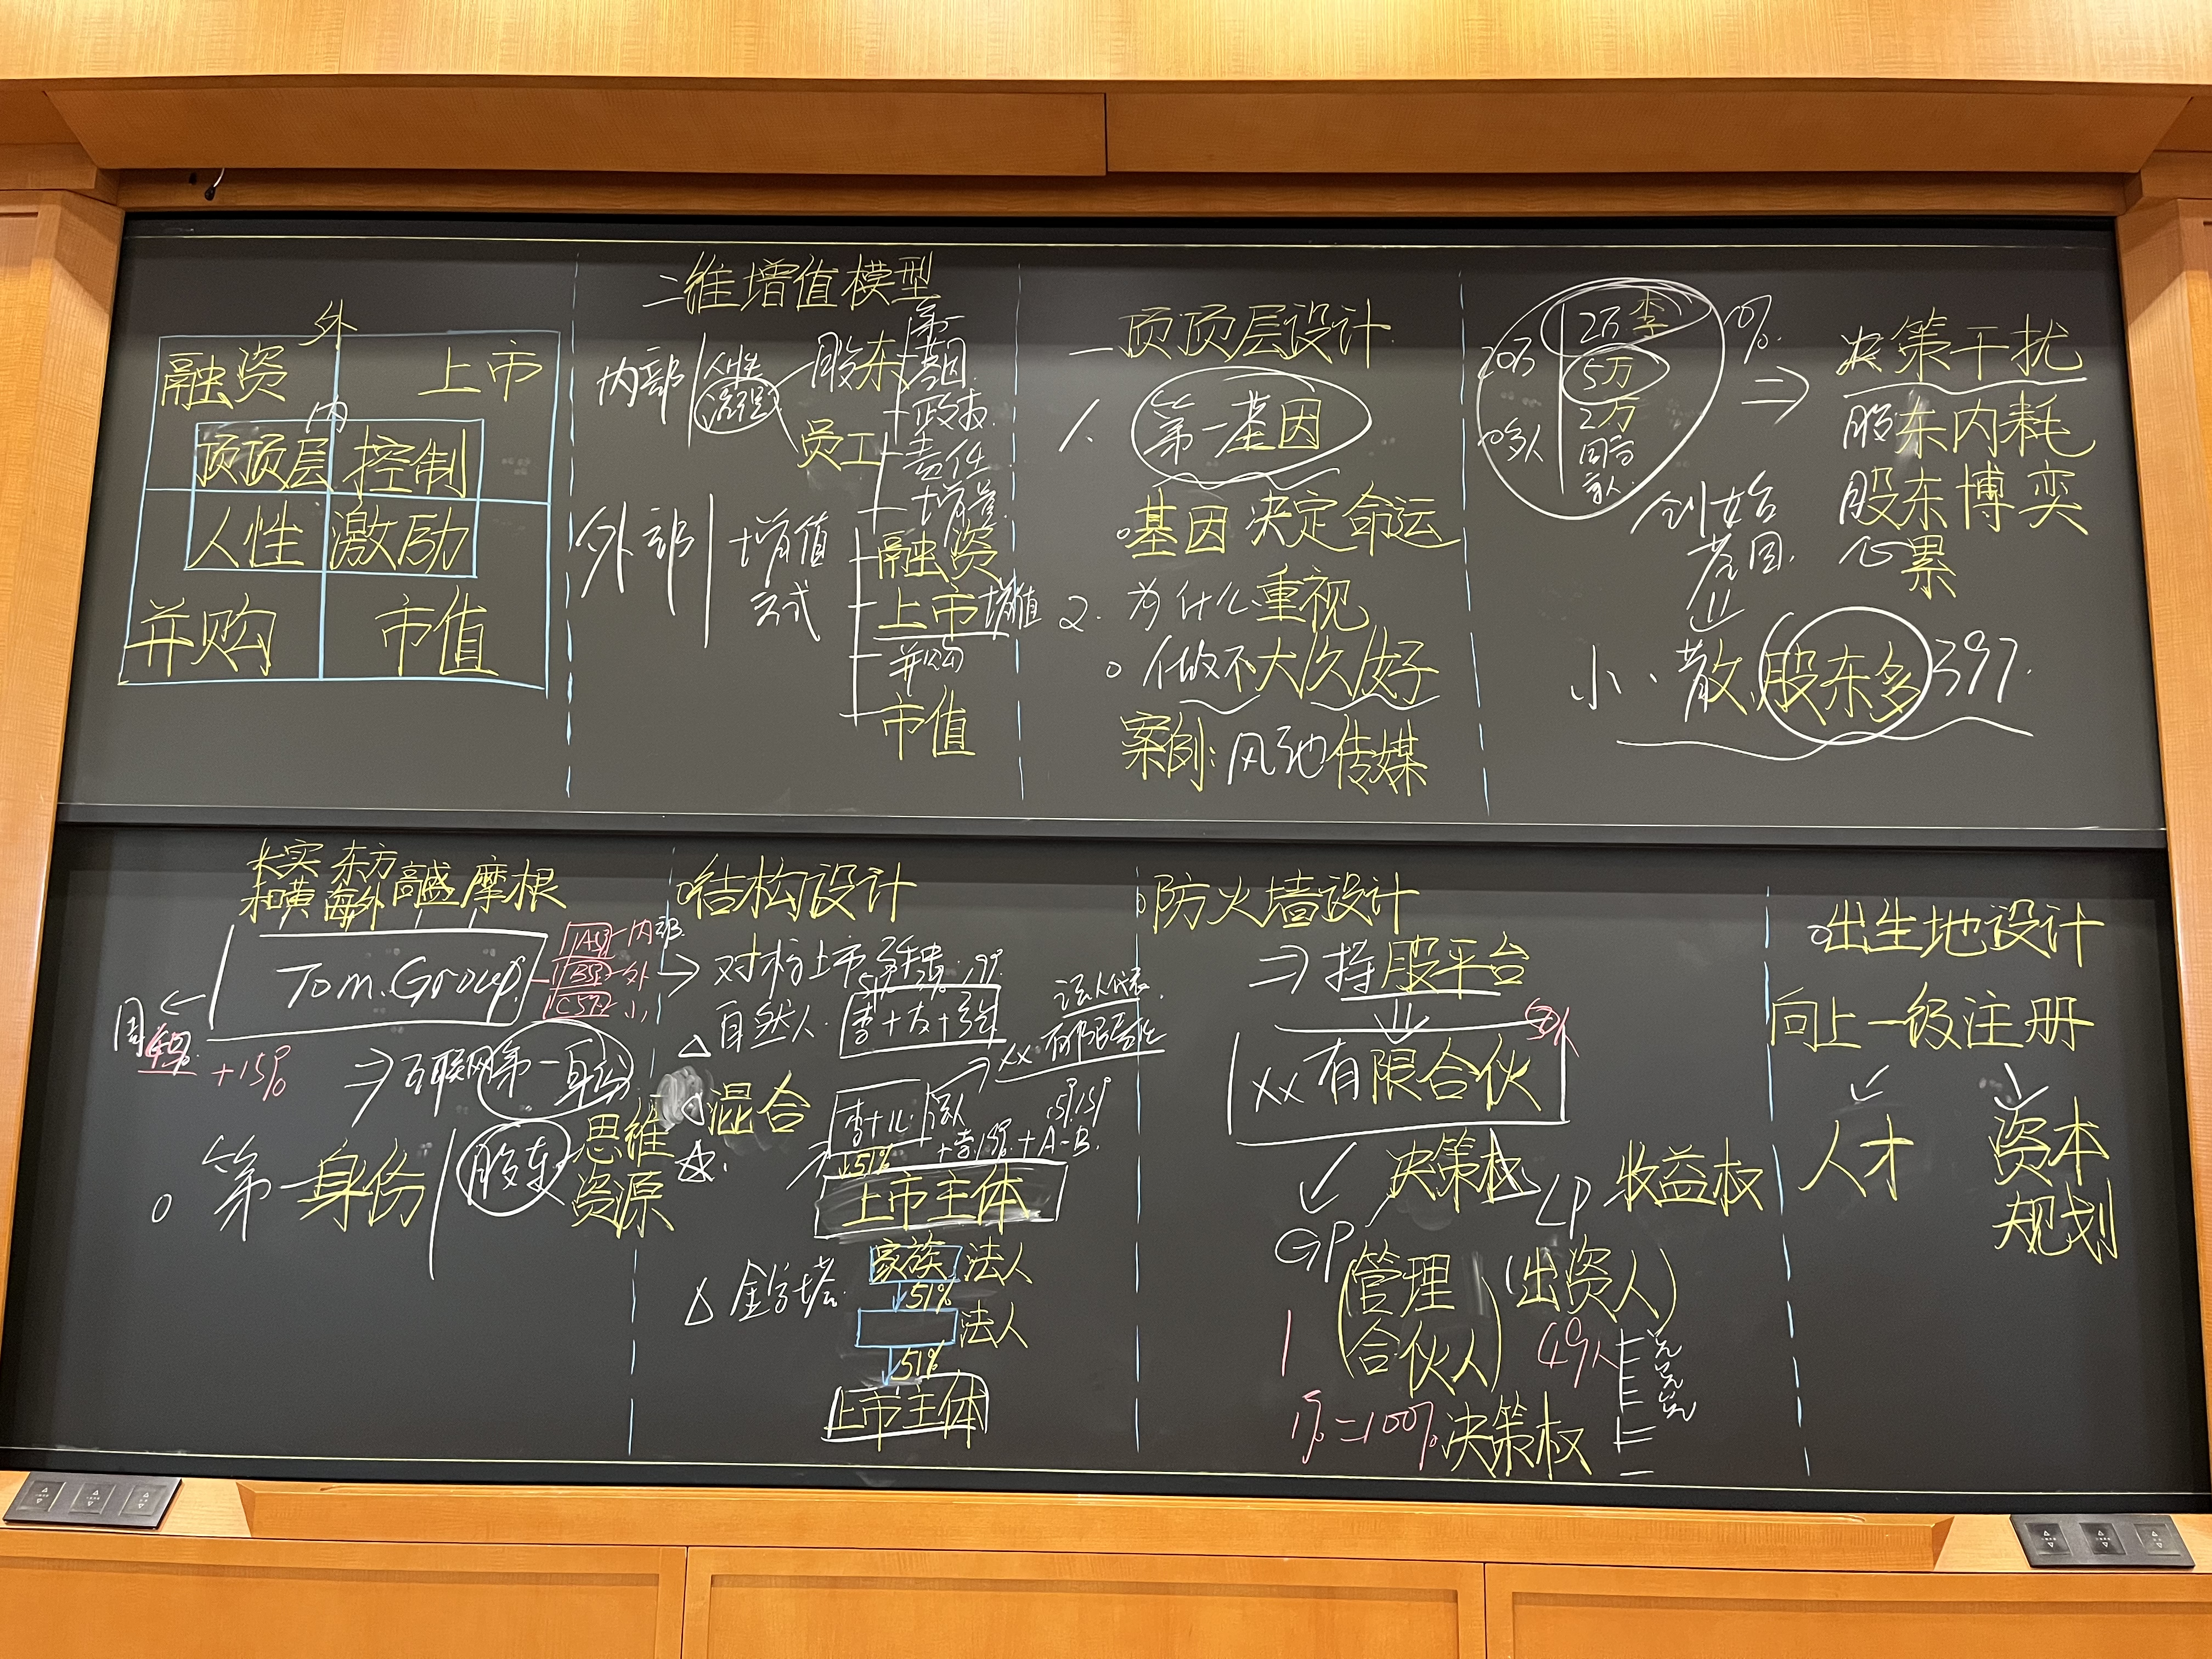 外
融资 上市
内
顶顶层 控制
人性 激励
并购 市值
二维增值模型
内部 人性
股东
第一
基因
员工
责任
增量
外部 增值
方式
融资
上市 增值
并购
市值
一 顶顶层设计
1、第一基因
基因决定命运
2. 为什么重视
做不大/久/好
案例: 风驰传媒
20万 2万 李
5万
2万
同高
家人
10%
创始
基因
⇒ 决策干扰
股东内耗
股东博奕
心累
小、散、股东多 397.
长实 东方
和黄 海外 高盛 摩根
Tom.Group
A 内部
B 外
C 小
周
+15%
⇒ 互联网第一身份
第一身份 股东 思维
资源
结构设计
对标上市
自然人
法人代表
xx 有限公司
混合
51%
A-B.
上市主体
金字塔
家族 法人
51%
法人
51%
上市主体
防火墙设计
⇒ 持股平台
xx有限合伙
决策权 LP 收益权
GP (管理合伙人) (出资人)
1 49人
1%=100%决策权
出生地设计
向上一级注册
人才 资本
规划